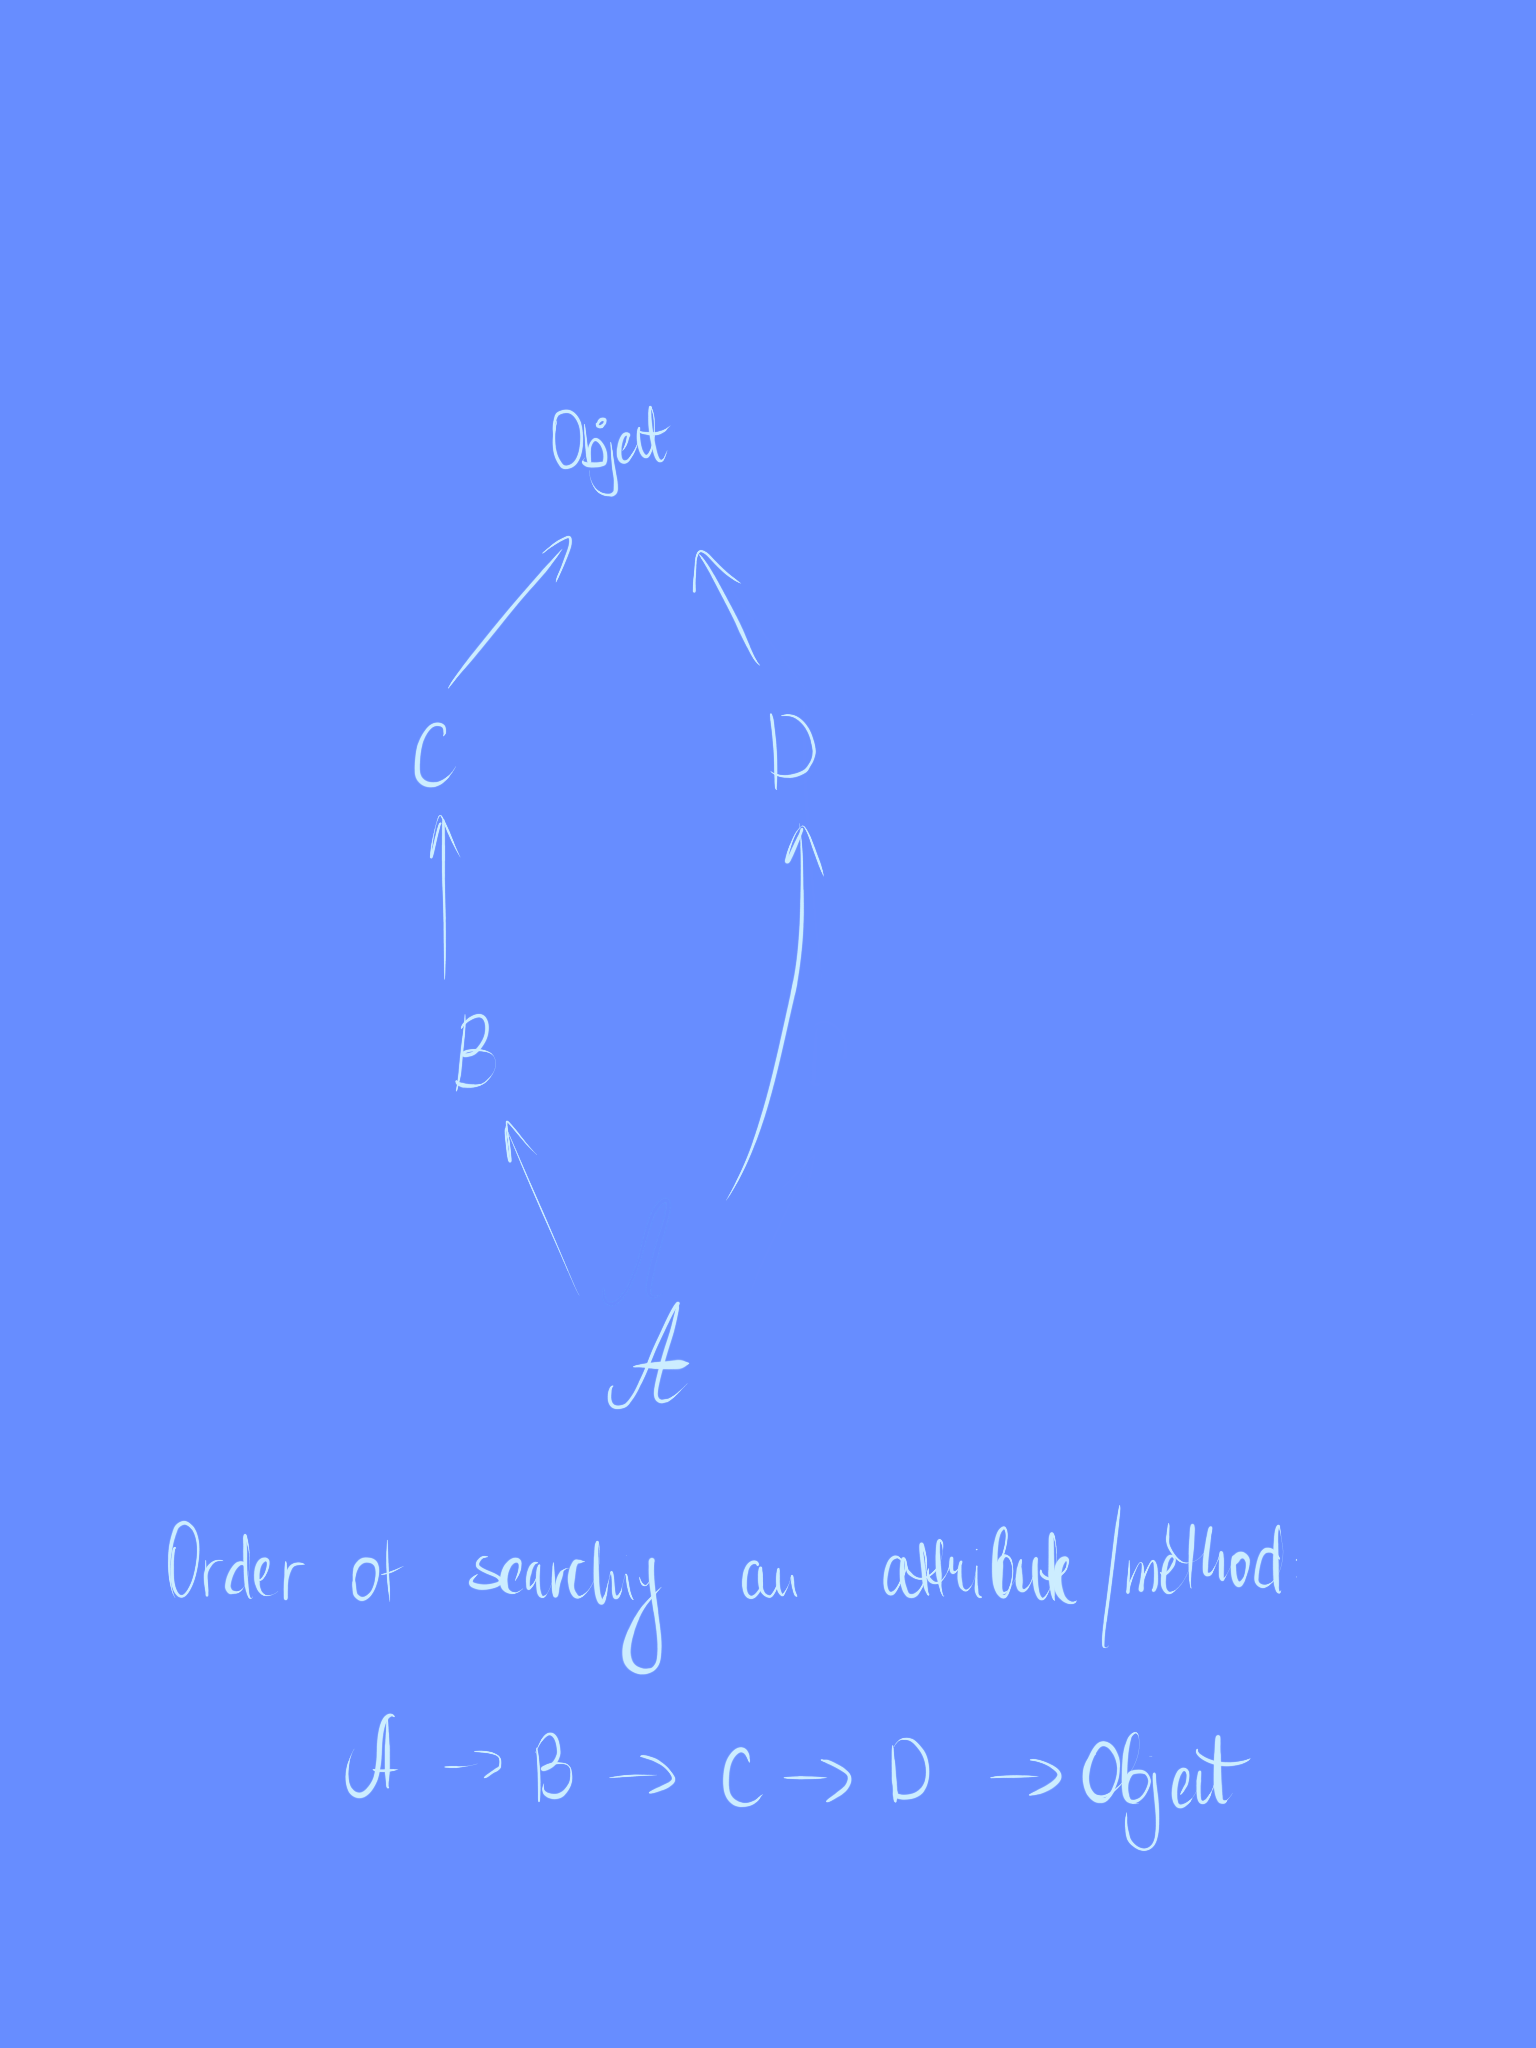 Object
C D
B
A
Order of searching an attribute/method:
A → B → C → D → Object